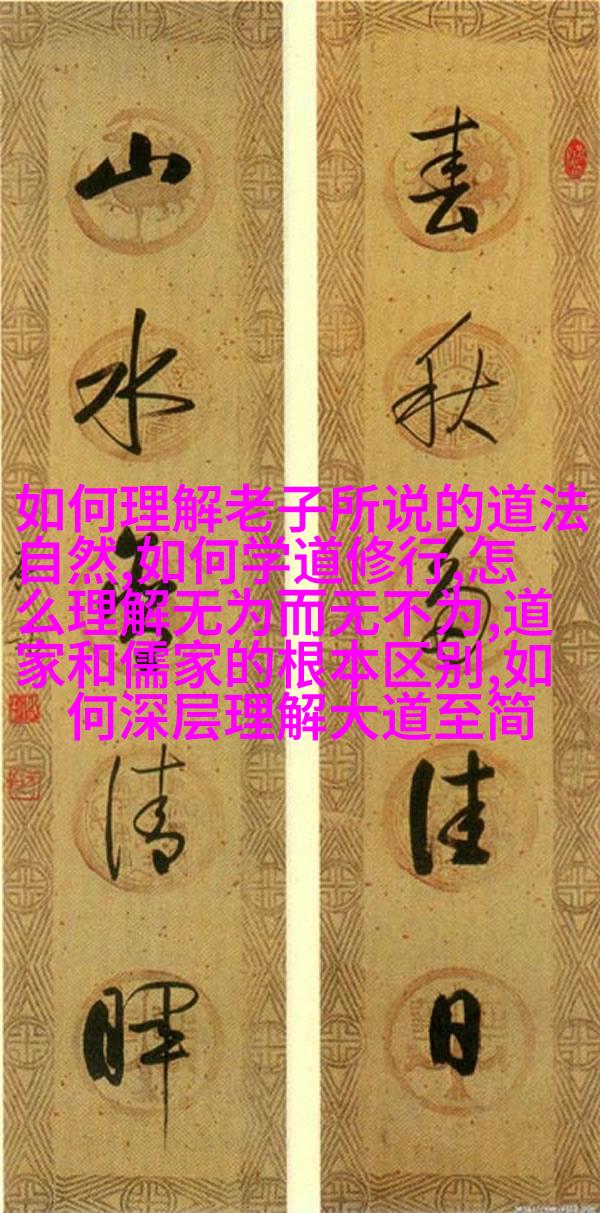 春秋佳日
山水清暉
如何理解老子所说的道法
自然,如何学道修行,怎
么理解无为而无不为,道
家和儒家的根本区别,如
何深层理解大道至简